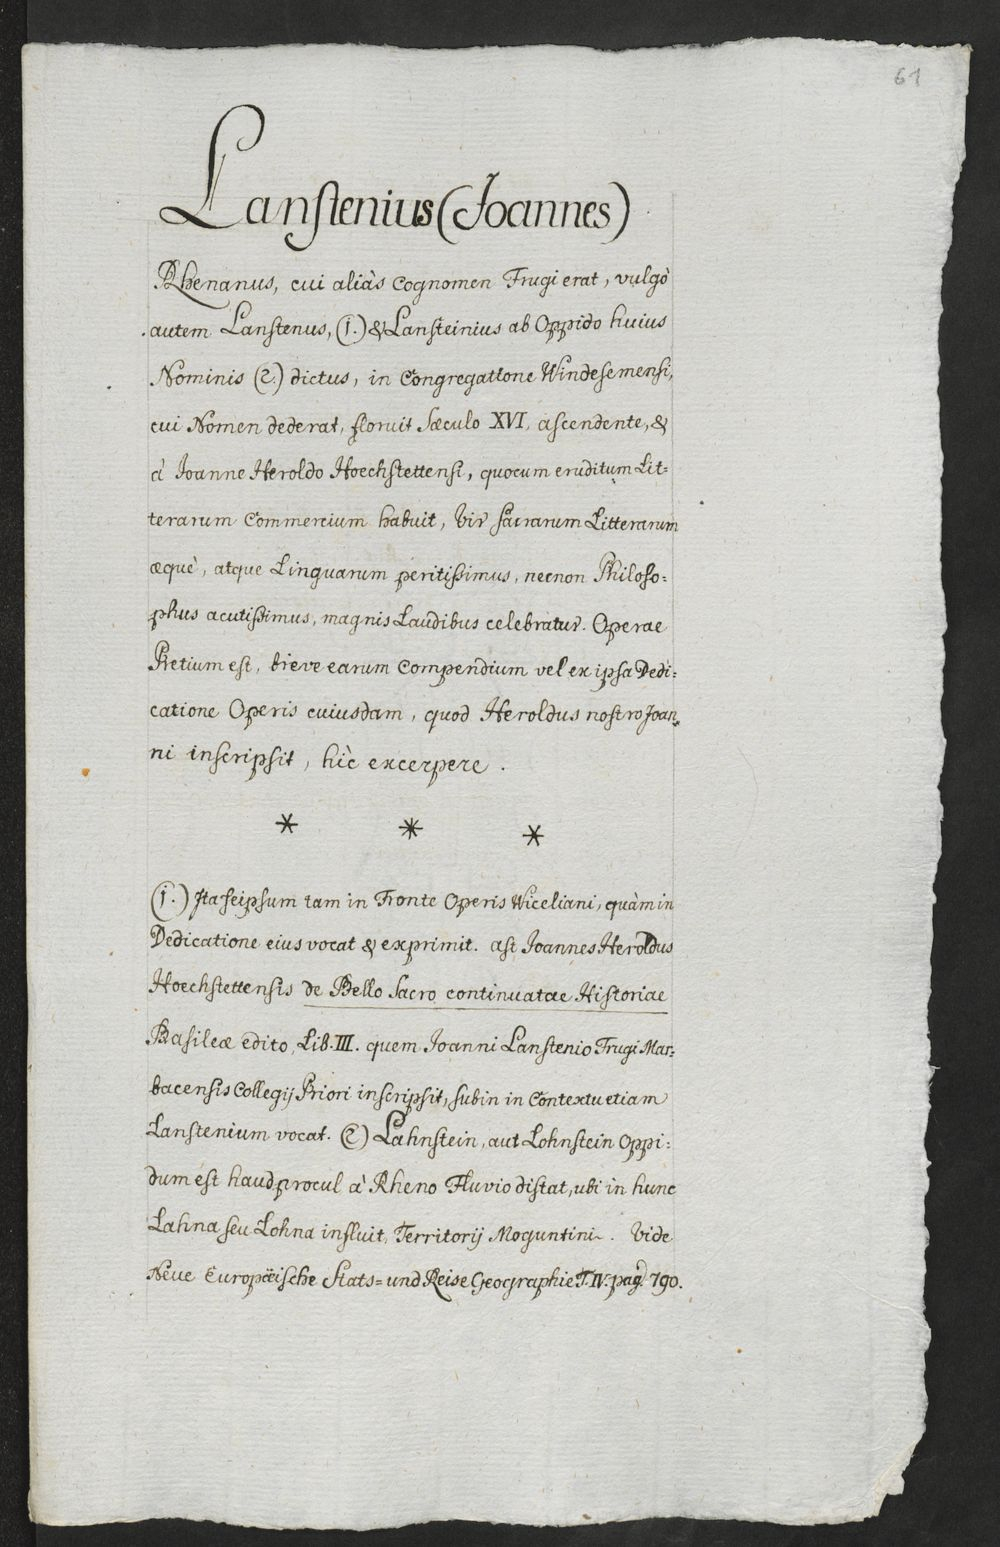 61
Lanstenius (Joannes)
Rhenanus, cui aliàs cognomen Frugi erat, vulgò
autem Lanstenus, (1.) & Lansteinius ab Oppido huius
Nominis (2.) dictus, in Congregatione Windesemensi,
cui Nomen dederat, floruit Sæculo XVI, ascendente, &
à Joanne Heroldo Hoechstettensi, quocum eruditum Lit=
terarum Commercium habuit, Vir Sacrarum Litterarum
æquè, atque Linguarum peritissimus, necnon Philoso=
phus acutissimus, magnis Laudibus celebratur. Operae
Pretium est, breve earum Compendium vel ex ipsa Dedi=
catione Operis cuiusdam, quod Heroldus nostro Joan=
ni inscripsit, hìc excerpere.
* * *
(1.) Ita seipsum tam in Fronte Operis Wiceliani, quàm in
Dedicatione eius vocat & exprimit. ast Joannes Heroldus
Hoechstettensis de Bello Sacro continuatae Historiae
Basileæ edito, Lib. III. quem Joanni Lanstenio Frugi Mar=
bacensis Collegij Priori inscripsit, subin in Contextu etiam
Lanstenium vocat. (2) Lahnstein, aut Lohnstein Oppi=
dum est haud procul à Rheno Fluvio distat, ubi in hunc
Lahna seu Lohna influit, Territorij Moguntini. Vide
Neue Europäische Stats= und Reise Geographie T. IV. pag. 790.